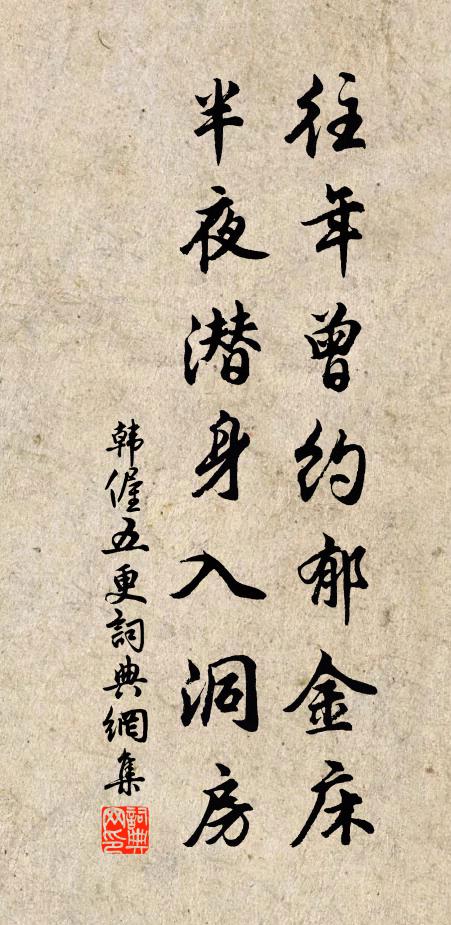 往年曾约郁金床
半夜潜身入洞房
韩偓五更詞典網集
詞典网印